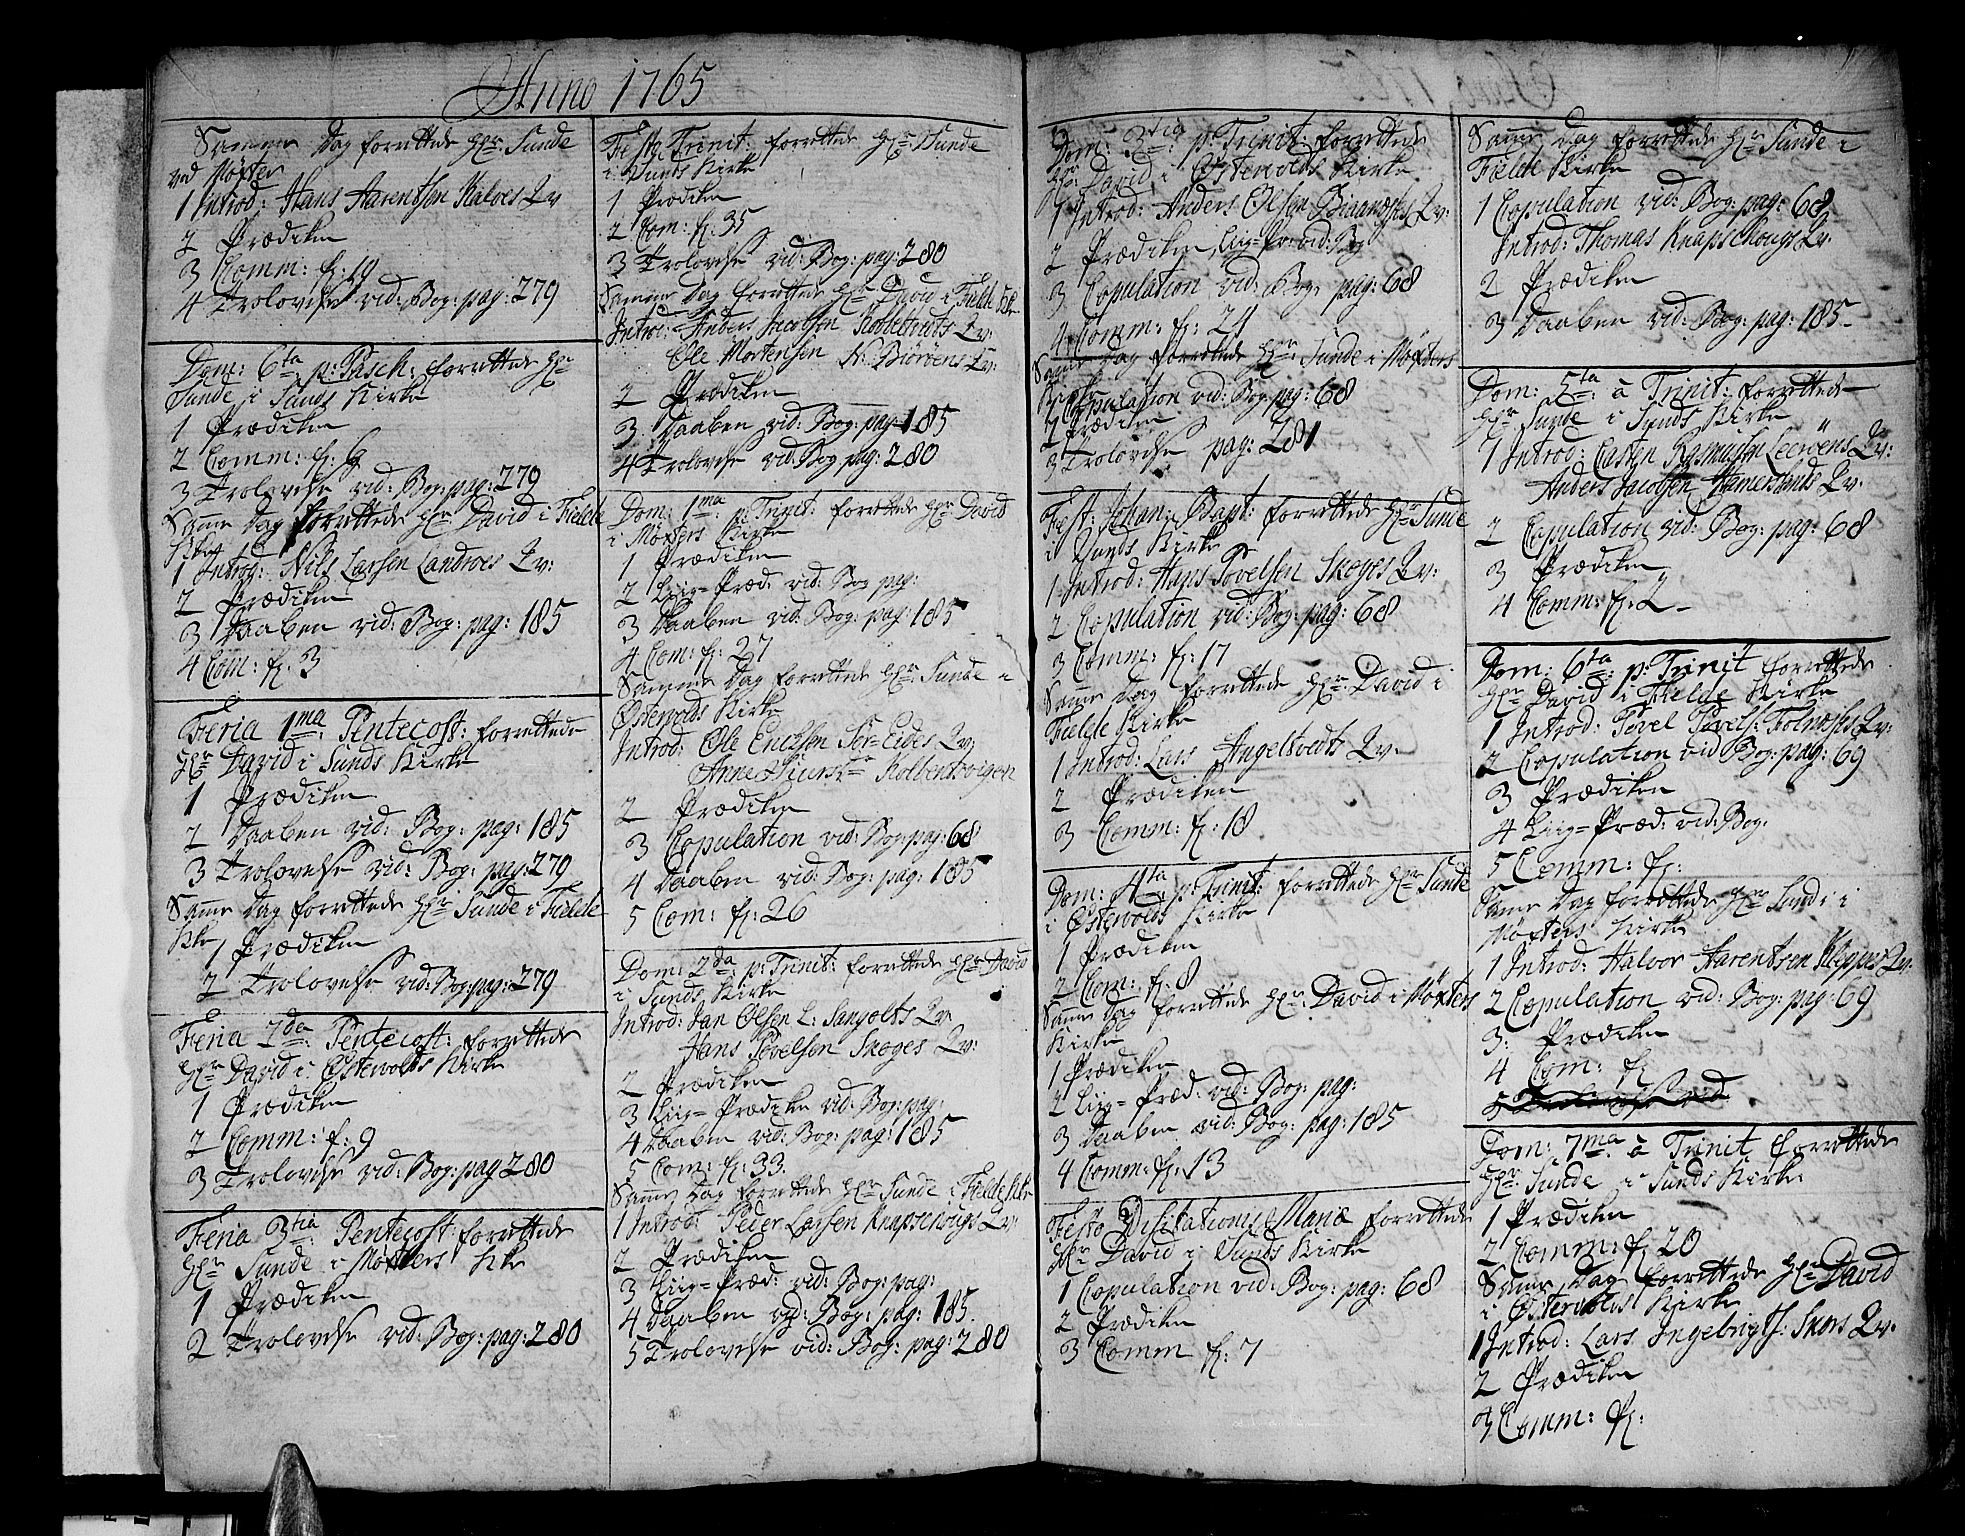 Anno 1765
Samme Dag forrettede Hr: Sunde
ved Møster
1 Introd: Hans Aarentsen Kalvers Qv
2 Prædiken
3 Comm: fl: 19
4 Trolovelse vid: Bog: pag: 279
Dom: 6ta p: Pasch: forrettede Hr
Sunde i Sunds Kirke
1 Prædiken
2 Comm: fl: 6
3 Trolovelse vid: Bog: pag: 279
Samme Dag forrettede Hr David i Fielde
Kirke
1 Introd: Nils Larsen Landroes Qv:
2 Prædiken
3 Daaben vid: Bog: pag: 185
4 Com: fl. 3
Feria 1ma Pentecost: forrettede
Hr David i Sunds Kirke
1 Prædiken
2 Daaben vid: Bog: pag: 185
3 Trolovelse vid: Bog: pag: 279
Samme Dag forrettede Hr Sunde i Fielde
Kke
1 Prædiken
2 Trolovelse vid: Bog: pag: 279
Feria 2da Pentecost: forrettede
Hr David i Østervolds Kirke
1 Prædiken
2 Comm: f: 9
3 Trolovelse vid: Bog: pag 280
Feria 3tia Pentecost: forrettede
Hr Sunde i Møxters Kke
1 Prædiken
2 Trolovelse vid: Bog: pag: 280
Festo Trinit: forrettede Hr Sunde
i Sunds Kirke
1 Prædiken
2 Com: fl: 35
3 Trolovelse vid: Bog: pag: 280
Samme Dag forrettede Hr David i Fielde
Introd: Anders Jacobsen Qv:
Ole Mortensen N: Biörøens Qv:
2 Prædiken
3 Daaben vid: Bog: pag: 185
4 Trolovelse vid: Bog pag: 280
Dom: 1ma p: Trinit: forrettede Hr David
i Møxters Kirke
1 Prædiken
2 Liig-Præd: vid: Bog pag:
3 Daaben vid: Bog: pag: 185
4 Com: fl: 27
Samme Dag forrettede Hr: Sunde i
Østervolds Kirke
Introd: Ole Erichsen Sør-Eides Qv
Anne Kolbentveigen
2 Prædiken
3 Copulation vid: Bog: pag: 68
4 Daaben vid: Bog: pag: 185
5 Com: fl: 26
Dom: 2da p: Trinit: forrettede Hr David
i Sunds Kirke
Introd: Jan Olsen L: Sangolts Qv
Hans Povelsen Skoges Qv:
2 Prædiken
3 Liig-Prædiken vid: Bog: pag:
4 Daaben vid: Bog: pag: 185
5 Com: fl: 33.
Samme Dag forrettede Hr Sunde i Fielde Kke
1 Introd: Peder Larsen Knapschougs Qv:
2 Prædiken
3 Liig-Præd: vid: Bog: pag:
4 Daaben vid: Bog: pag: 185
5 Trolovelse vid: Bog: pag: 280
Dom: 3tia p: Trinit: forrettede
Hr: David i Østervolds Kirke
1 Introd: Anders Olsen Qv:
2 Prædiken, Liig-Pr: vid: Bog
3 Copulation vid: Bog: pag: 68
4 Comm: fl: 21
Samme Dag forrettede Hr: Sunde i Møxters
Kirke
1 Copulation vid: Bog: pag: 68
2 Prædiken
3 Trolovelse pag: 281
Fest: Johan: Bapt: forrettede Hr Sunde
i Sunds Kirke
1 Introd: Hans Povelsen Skoges Qv:
2 Copulation vid: Bog: pag: 68
3 Comm: fl: 17
Samme Dag forrettede Hr: David i
Fielde Kirke
1 Introd: Lars Angeltvedt Qv:
2 Prædiken
3 Comm: fl: 18
Dom: 4ta p: Trinit: forrettede Hr Sunde
i Østervolds Kirke
1 Prædiken
2 Com: fl: 8
Samme Dag forrettede Hr: David i Møxters
Kirke
1 Prædiken
2 Liig-Præd: vid: Bog: pag:
3 Daaben vid: Bog: pag: 185
4 Comm: fl: 13
Festo Visitationis Mariæ forrettede
Hr David i Sunds Kirke
1 Copulation vid: Bog: pag: 68
2 Prædiken
3 Comm fl: 7
Samme Dag forrettede Hr Sunde i
Fielde Kirke
1 Copulation vid: Bog: pag: 68
Introd: Thomas Knapschougs Qv:
2 Prædiken
3 Daaben vid: Bog: pag: 185
Dom: 5ta à Trinit: forrettede
Hr Sunde i Sunds Kirke
1 Introd: Casten Rasmusen Leerøens Qv:
Anders Jacobsen Hamerlands Qv:
2 Copulation vid: Bog: pag: 68
3 Prædiken
4 Comm: fl: 2
Dom: 6ta p: Trinit forrettede
Hr David i Fielde Kirke
1 Introd: Povel Povels: Qv:
2 Copulation vid Bog: pag: 69
3 Prædiken
4 Liig-Præd: vid: Bog:
5 Comm: fl:
Samme Dag forrettede Hr Sund i
Møxters Kirke
1 Introd: Halvor Aarentsen Kleppes Qv:
2 Copulation vid: Bog: pag: 69
3: Prædiken
4 Com: fl
5 Trolovelse vid
Dom: 7ma à Trinit forrettede
Hr Sunde i Sunds Kirke
1 Prædiken
2 Comm: fl 20
Samme Dag forrettede Hr David
i Østervolds Kirke
1 Introd: Lars Ingebrigts: Skars Qv:
2 Prædiken
3 Comm: fl: